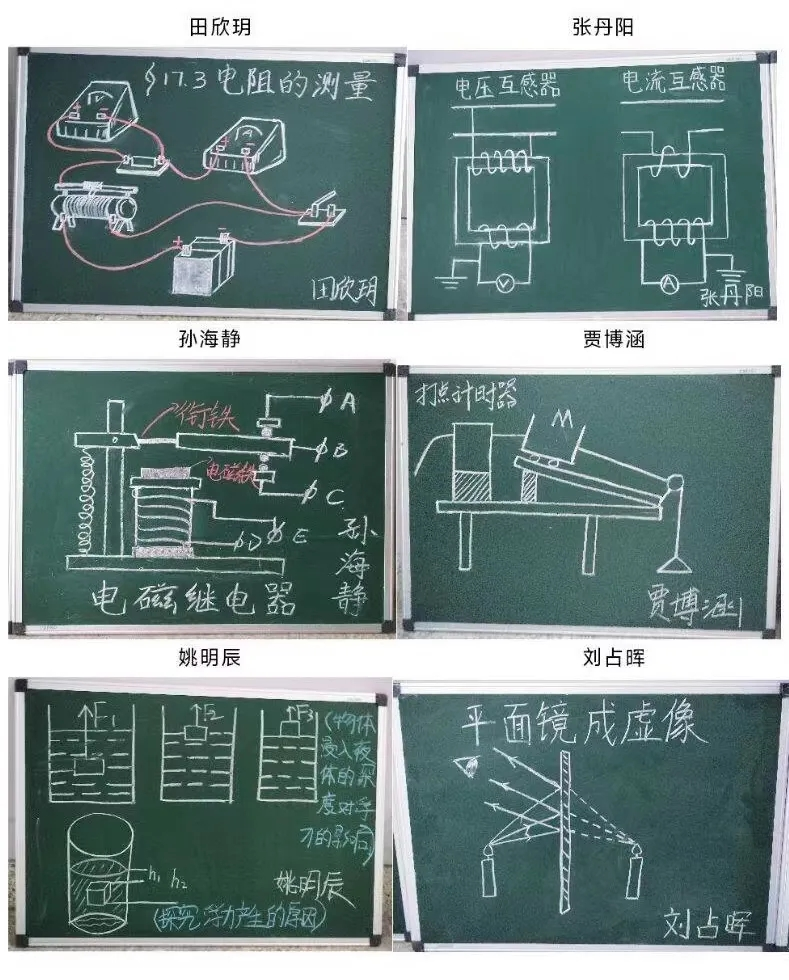 田欣玥
张丹阳
§17.3 电阻的测量
V
A
+ -
+ -
+ -
田欣玥
电压互感器
电流互感器
V
A
张丹阳
孙海静
贾博涵
衔铁
电磁铁
A
B
C
D
E
孙海静
电磁继电器
打点计时器
M
贾博涵
姚明辰
刘占晖
F1
F2
F3
(物体
浸入液
体的深
度对浮
力的影响)
h1 h2
姚明辰
(探究浮力产生的原因)
平面镜成虚像
刘占晖